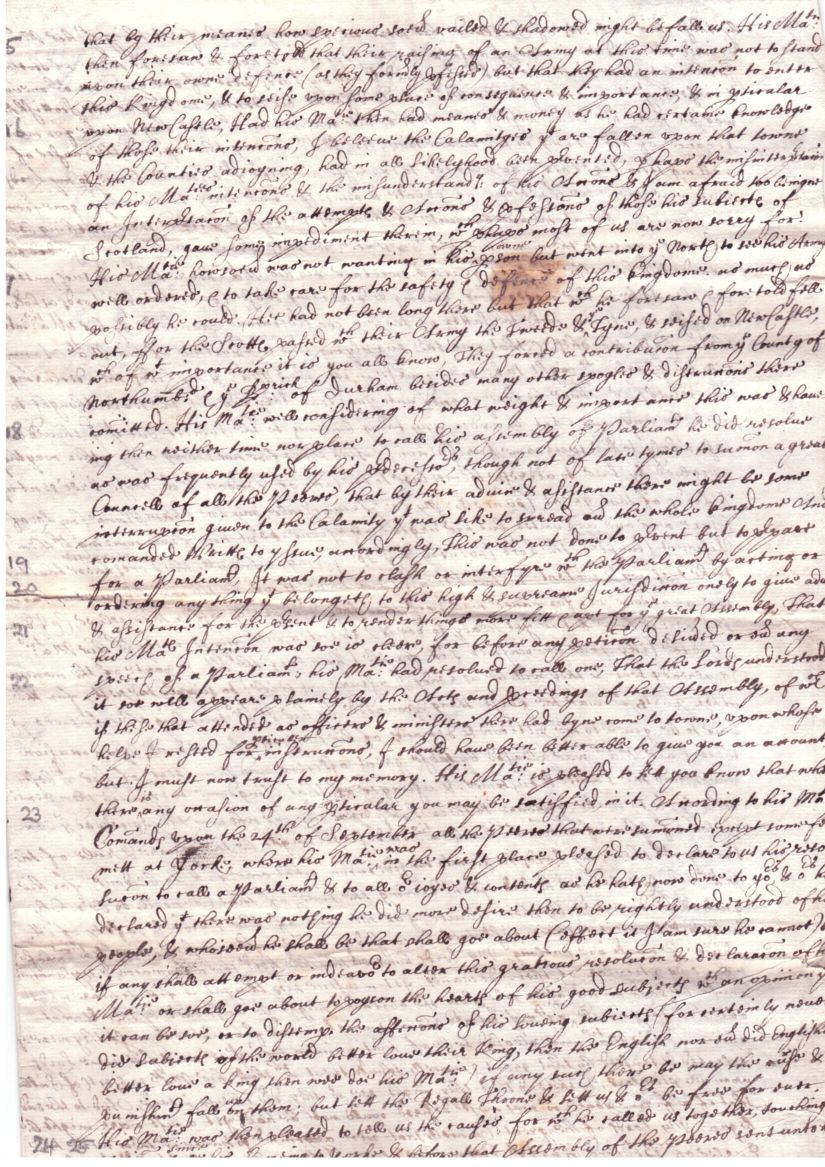 that by their meanes how specious soeu͛ vailed & shadowed might befall us. His Ma:tie
5
then foresaw & foretold that their raising of an Army at this time was not to stand
upon their owne defence (as they formerly p͛fessed) but that they had an intencõn to enter
this Kingdome, & to seise upon some place of consequence & importance, & in p͛ticular
16
upon New Castle, Had his Ma:tie then had meanes & money as he had certaine knowledge
of those their intencons, I beleeve the Calamityes yt are fallen upon that towne
& the Counties adioyning, had in all likelyhood been p͛vented, p͛haps the misinterp͛tacõn
of his Ma:ties intencons & the misunderstandg of his Accõns & I am afraid too benigne
an Interp͛tacõn of the attempts & Accõns & p͛fessions of those his subiects of
Scotland, gave some impediment therein, wch p͛haps most of us are now sorry for
His Ma:tie howsoeu͛ was not wanting in his owne p͛son but went into ye North to see his Army
7
well ordered, & to take care for the safety & defence of this kingdome as much as
possibly he could, Hee had not been long there but that wch he foresaw & foretold fell
out, ffor the Scotts passed wth their Army the Tweede & Tyne, & seised on NewCastle,
wch of wt importance it is you all know, They forced a contribucon from ye County of
Northumbld & ye Bp͛rick of Durham besides many other spoyles & distruccons there
18
comitted. His Ma:tie well considering of what weight & importance this was & have
ing then neither time nor place to call his assembly of Parliamt he did resolve
as was frequently used by his p͛decessors, though not of late tymes to sumon a great
Councell of all the Peeres, that by their advice & assistance there might be some
interrupcõn given to the Calamity yt was like to spread ou͛ the whole kingdome And
comanded Writts to yssue accordingly, This was not done to p͛vent but to p͛pare
19
for a Parliamt, It was not to clash or interfyre wth the Parliamt by acting or
20
ordering any thing yt belongeth to this high & supreame Jurisdiccon onely to give
& assistance for the p͛sent & to render things more fitt & apt for ye great Assembly, That
21
his Mats Intencõn was soe is cleere for before any peticõn deliu͛ed or eu͛ any
speech of a Parliamt, his Ma:tie had resolved to call one, That the Lords understood
22
it soe will appeare plainely by the Acts and p͛ceedings of that Assembly, of wch
if these that attended as officers & ministers there had byne come to towne, upon whose
helpe I rested for p͛ticular instruccons, I should have been better able to give you an account
but I must now trust to my memory. His Ma:tie is pleased to lett you know that
there is any occasion of any p͛ticular you may be satisfied in it. According to his Mats
23
Comands upon the 24th of September all the Peeres that were sumoned except some
mett at Yorke, where his Ma:tie was in the first place pleased to declare to us his
lucon to call a Parliamt & to all or ioyes & contents as he hath now done to yors & ors
declared yt there was nothing he did more desire then to be rightly understood of
people, & whosoeu͛ he shall be that shall goe about (effect it I am sure he cannot)
if any shall attempt or indeavor to alter this gratious resolucon & declaracon of
Ma:tie or shall goe about to poyson the hearts of his good subiects wth an opinion yt
it can be soe, or to distemp͛ the affeccons of his loving subiects (for certeinly never
did subiects of the world better love their King, then the English nor eu͛ did English
better love a king then wee doe his Ma:tie) if any such there be may the &
punishmt fall on them; but lett the Regall Throne & lett us & ors be free for ever.
His Ma:tie was then pleased to tell us the causes for wch he called us together, touching
24 25
& before that Assembly of the Peeres sent unto